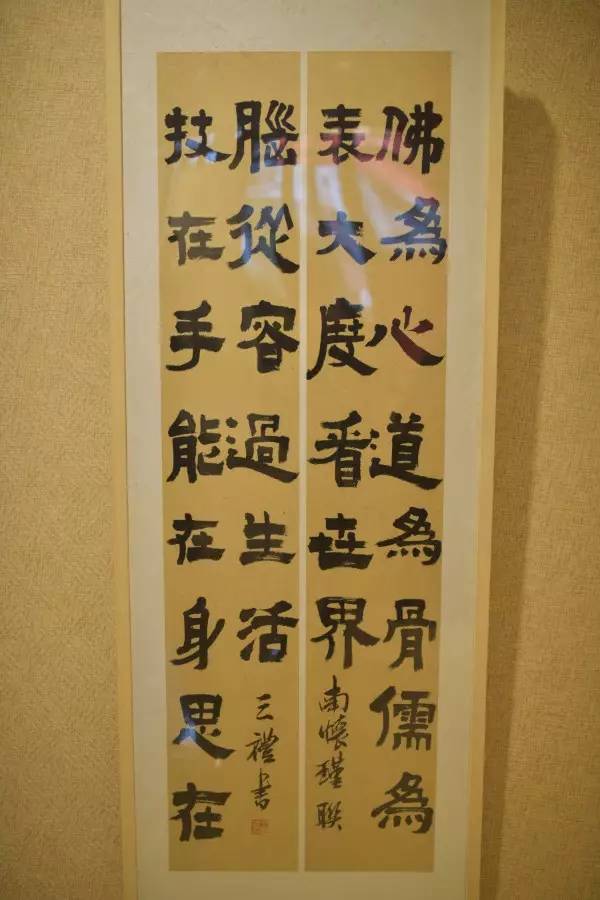 佛為心道為骨儒為
表大度看世界
南懷瑾聯
技在手能在身思在
腦從容過生活
三禮書